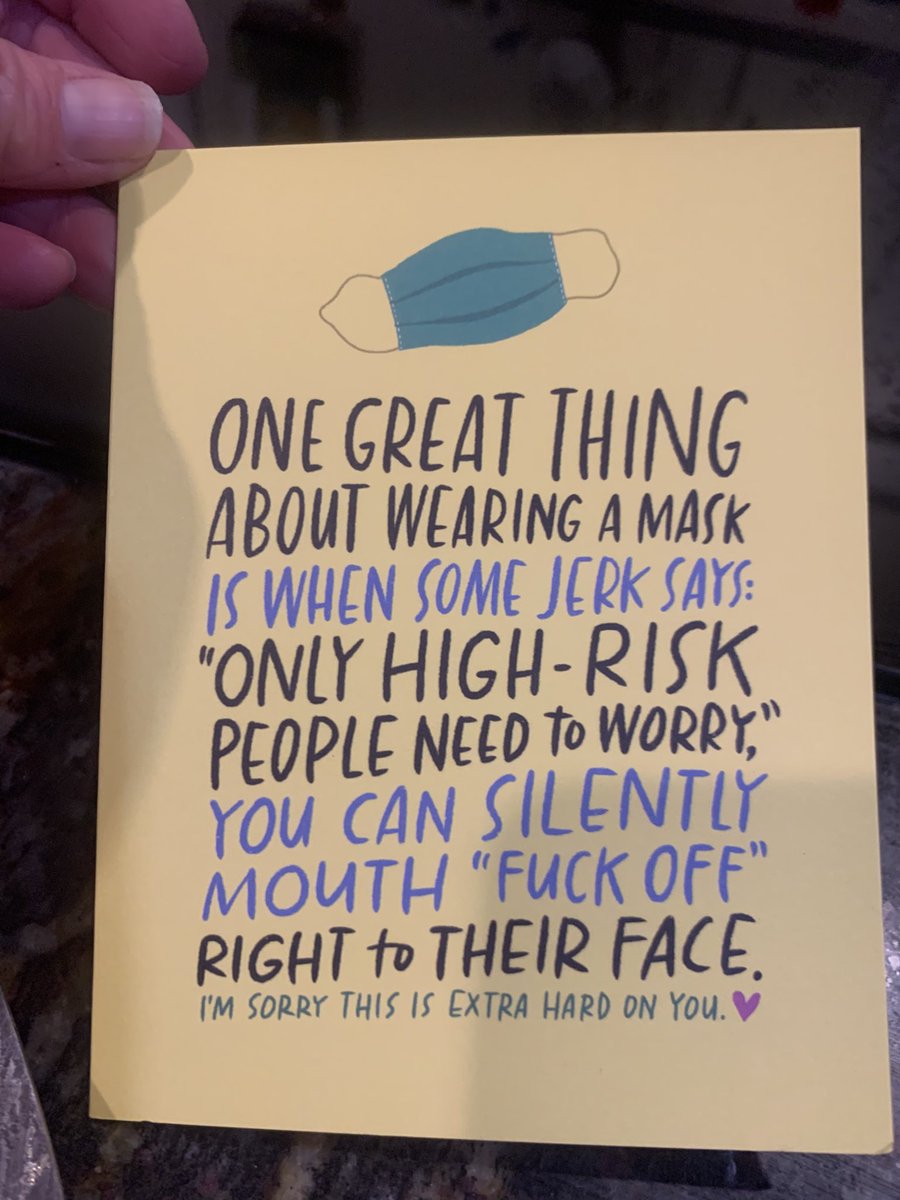 ONE GREAT THING
ABOUT WEARING A MASK
IS WHEN SOME JERK SAYS:
"ONLY HIGH-RISK
PEOPLE NEED to WORRY,"
YOU CAN SILENTLY
MOUTH "FUCK OFF"
RIGHT to THEIR FACE.
I'M SORRY THIS IS EXTRA HARD ON YOU.